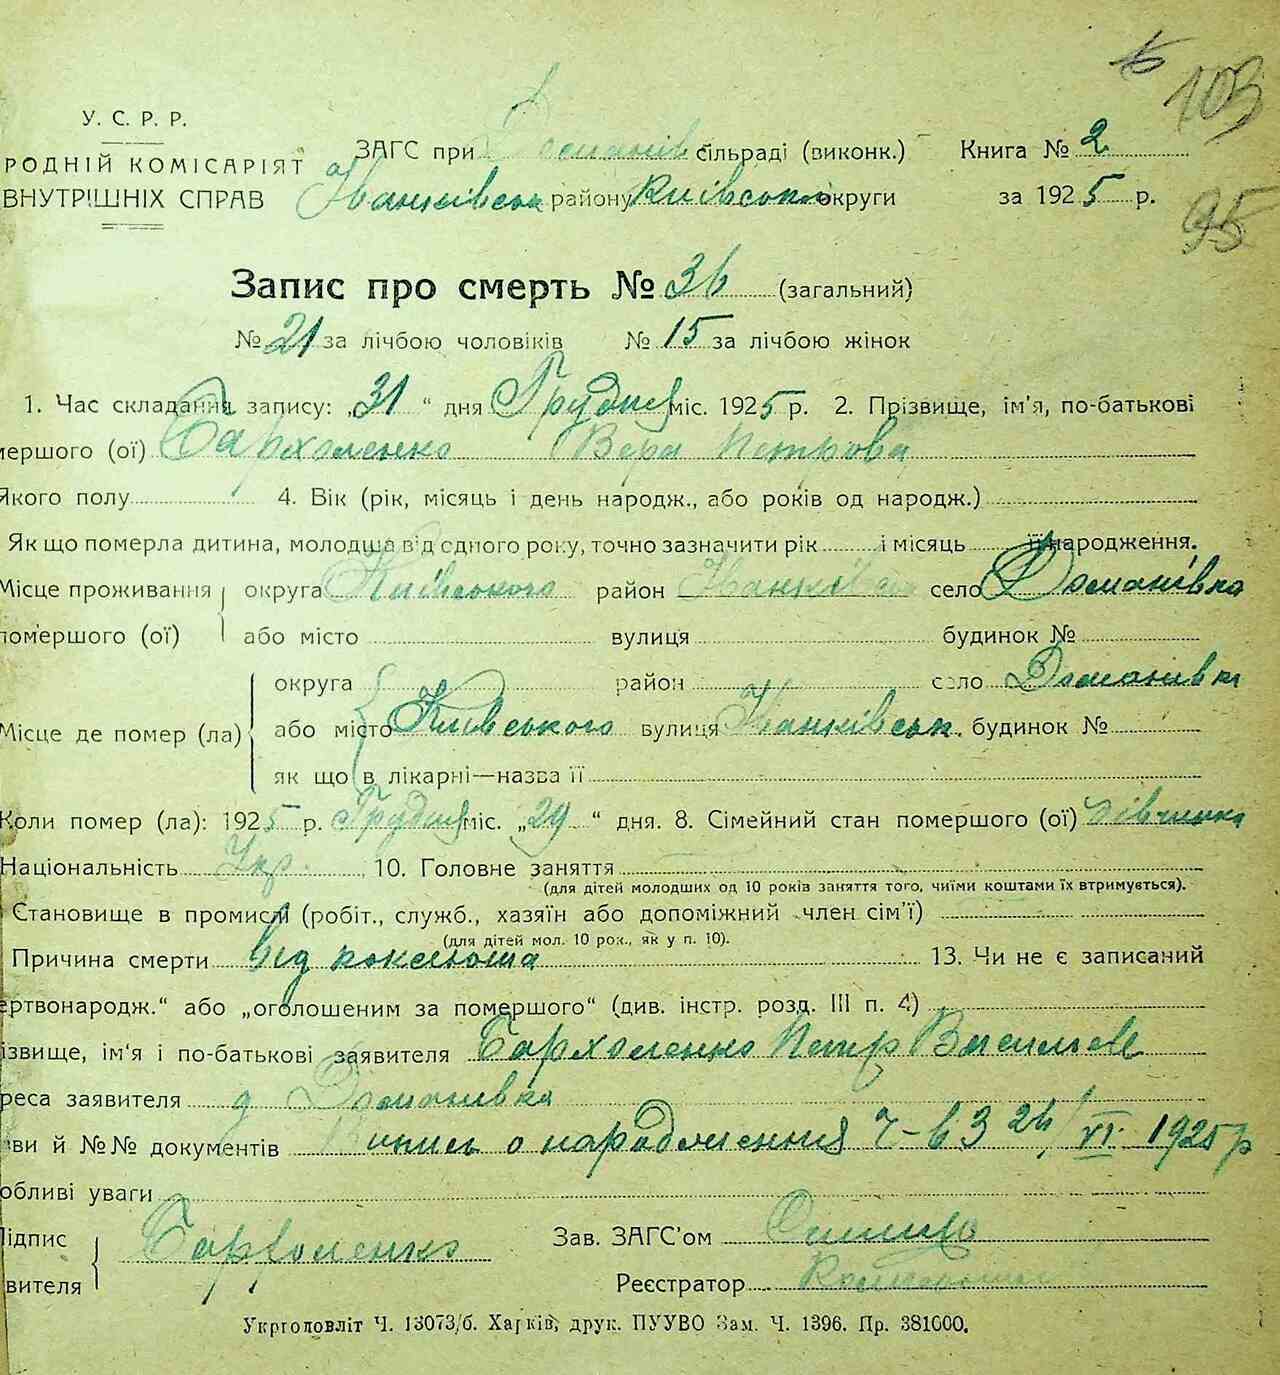 103
У. С. Р. Р.
РОДНІЙ КОМІСАРІЯТ
ВНУТРІШНІХ СПРАВ
95
ЗАГС при Доманів сільраді (виконк.) Книга № 2
Іванківськ району Київського округи за 1925 р.
Запис про смерть № 36 (загальний)
№ 21 за лічбою чоловіків № 15 за лічбою жінок
1. Час складання запису: „31“ дня Грудня міс. 1925 р. 2. Прізвище, ім'я, по-батькові
мершого (ої) Бархоленко Вера Петрова
Якого полу 4. Вік (рік, місяць і день народж., або років од народж.)
Як що померла дитина, молодша від одного року, точно зазначити рік і місяць її народження.
Місце проживання округа Київського район Іванків село Доманівка
помершого (ої) або місто вулиця будинок №
округа район село Доманівка
Місце де помер (ла) або місто Київського вулиця Іванківськ. будинок №
як що в лікарні—назва її
Коли помер (ла): 1925 р. Грудня міс. „29“ дня. 8. Сімейний стан помершого (ої) дівчинка
Національність Укр. 10. Головне заняття
(для дітей молодших од 10 років заняття того, чиїми коштами їх втримується).
Становище в промислі (робіт., служб., хазяїн або допоміжний член сім'ї)
(для дітей мол. 10 рок., як у п. 10).
Причина смерти від коклюша 13. Чи не є записаний
ертвонародж.“ або „оголошеним за помершого“ (див. інстр. розд. III п. 4)
ізвище, ім'я і по-батькові заявителя Бархоленко Петр Васильев
реса заявителя д Доманівка
зви й №№ документів о народження Ч-63 26/VI. 1925 р
обливі уваги
Підпис Бархоленко Зав. ЗАГС'ом
вителя Реєстратор
Укрголовліт Ч. 13073/б. Харків, друк. ПУУВО Зам. Ч. 1396. Пр. 381000.